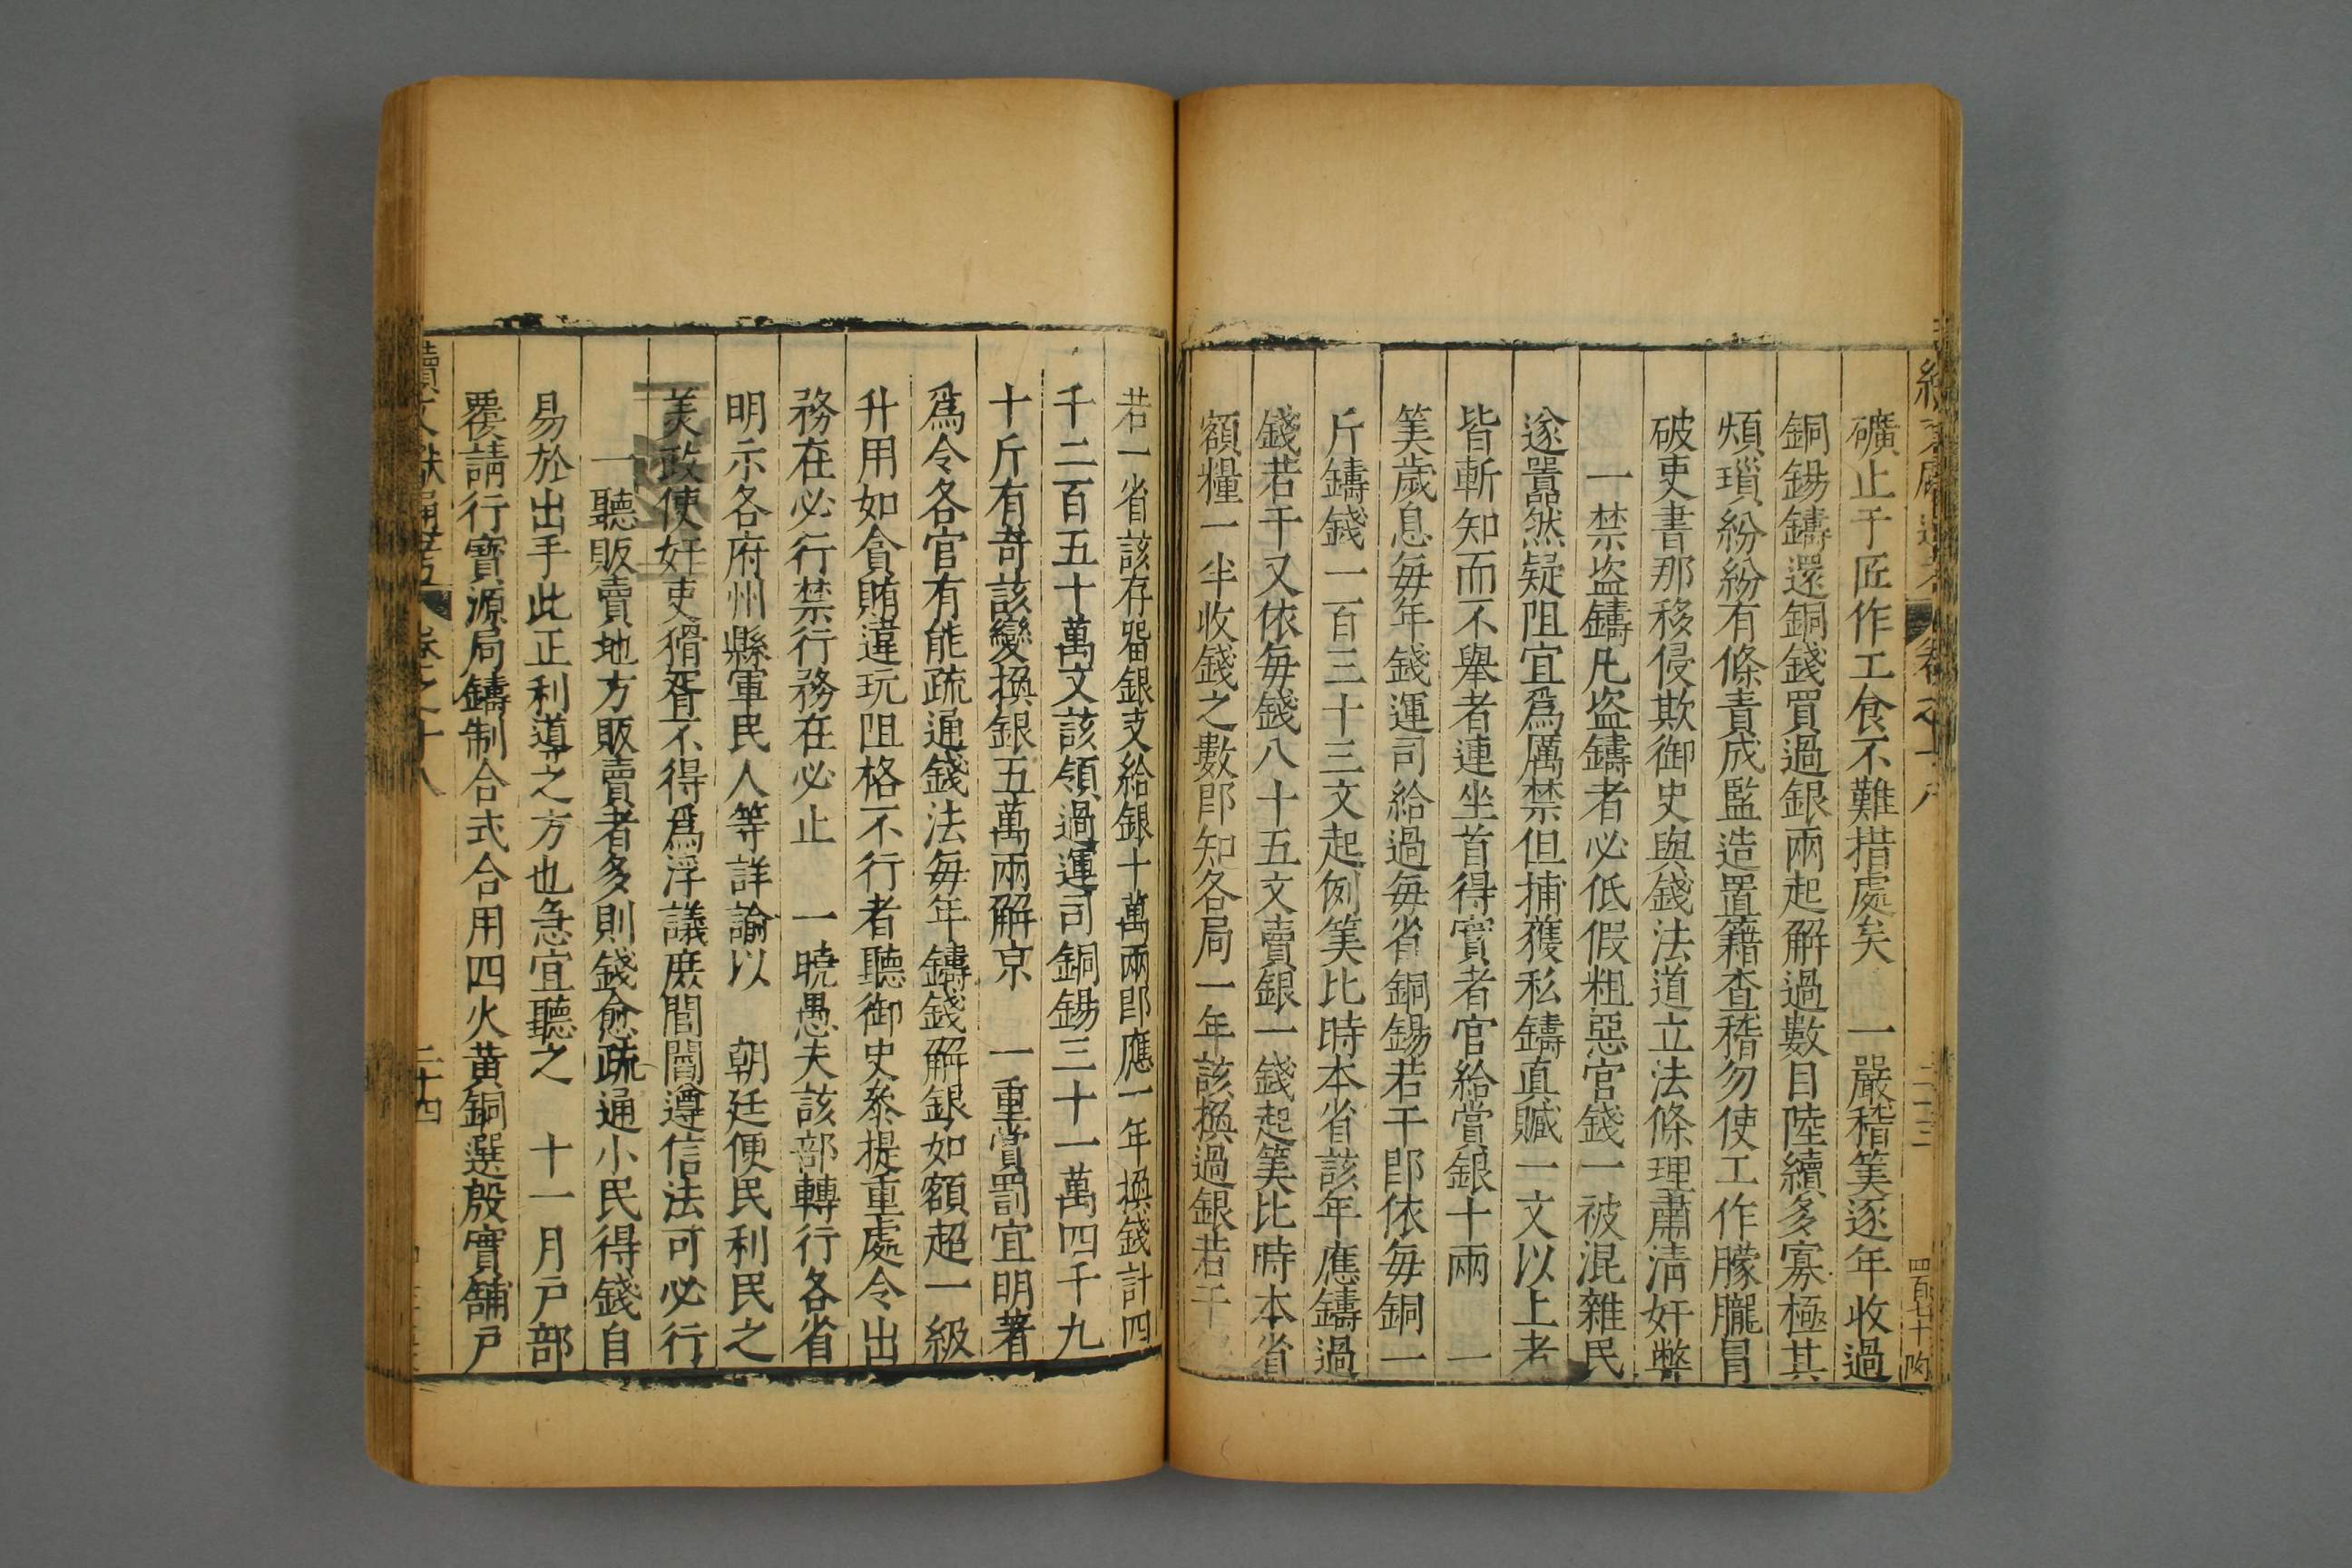 卷之十八
二十三
四百七十
礦止于匠作工食不難措處矣 一嚴稽筭逐年收過
銅錫鑄還銅錢買過銀兩起解過數目陸續多寡極其
煩瑣紛紛有條責成監造置籍查稽勿使工作朦朧冒
破吏書那移侵欺御史與錢法道立法條理肅清奸弊
一禁盜鑄凡盜鑄者必低假粗惡官錢一被混雜民
遂嚚然疑阻宜爲厲禁但捕獲私鑄直贓一文以上者
皆斬知而不舉者連坐首得實者官給賞銀十兩 一
筭歲息每年錢運司給過每省銅錫若干卽依每銅一
斤鑄錢一百三十三文起例筭比時本省該年應鑄過
錢若干又依每錢八十五文賣銀一錢起筭比時本省
額糧一半收錢之數卽知各局一年該換過銀若干
若一省該存畱銀支給銀十萬兩卽應一年換錢計四
千二百五十萬文該領過運司銅錫三十一萬四千九
十斤有奇該變換銀五萬兩解京 一重賞罰宜明著
爲令各官有能疏通錢法每年鑄錢解銀如額超一級
升用如貪賄違玩阻格不行者聽御史叅提重處令出
務在必行禁行務在必止 一曉愚夫該部轉行各省
明示各府州縣軍民人等詳諭以 朝廷便民利民之
美政使奸吏猾胥不得爲浮議庶閭閻遵信法可必行
一聽販賣地方販賣者多則錢愈疏通小民得錢自
易於出手此正利導之方也急宜聽之 十一月戸部
覆請行寳源局鑄制合式合用四火黄銅選殷實舗戸
續文獻通考 卷之十八
二十四